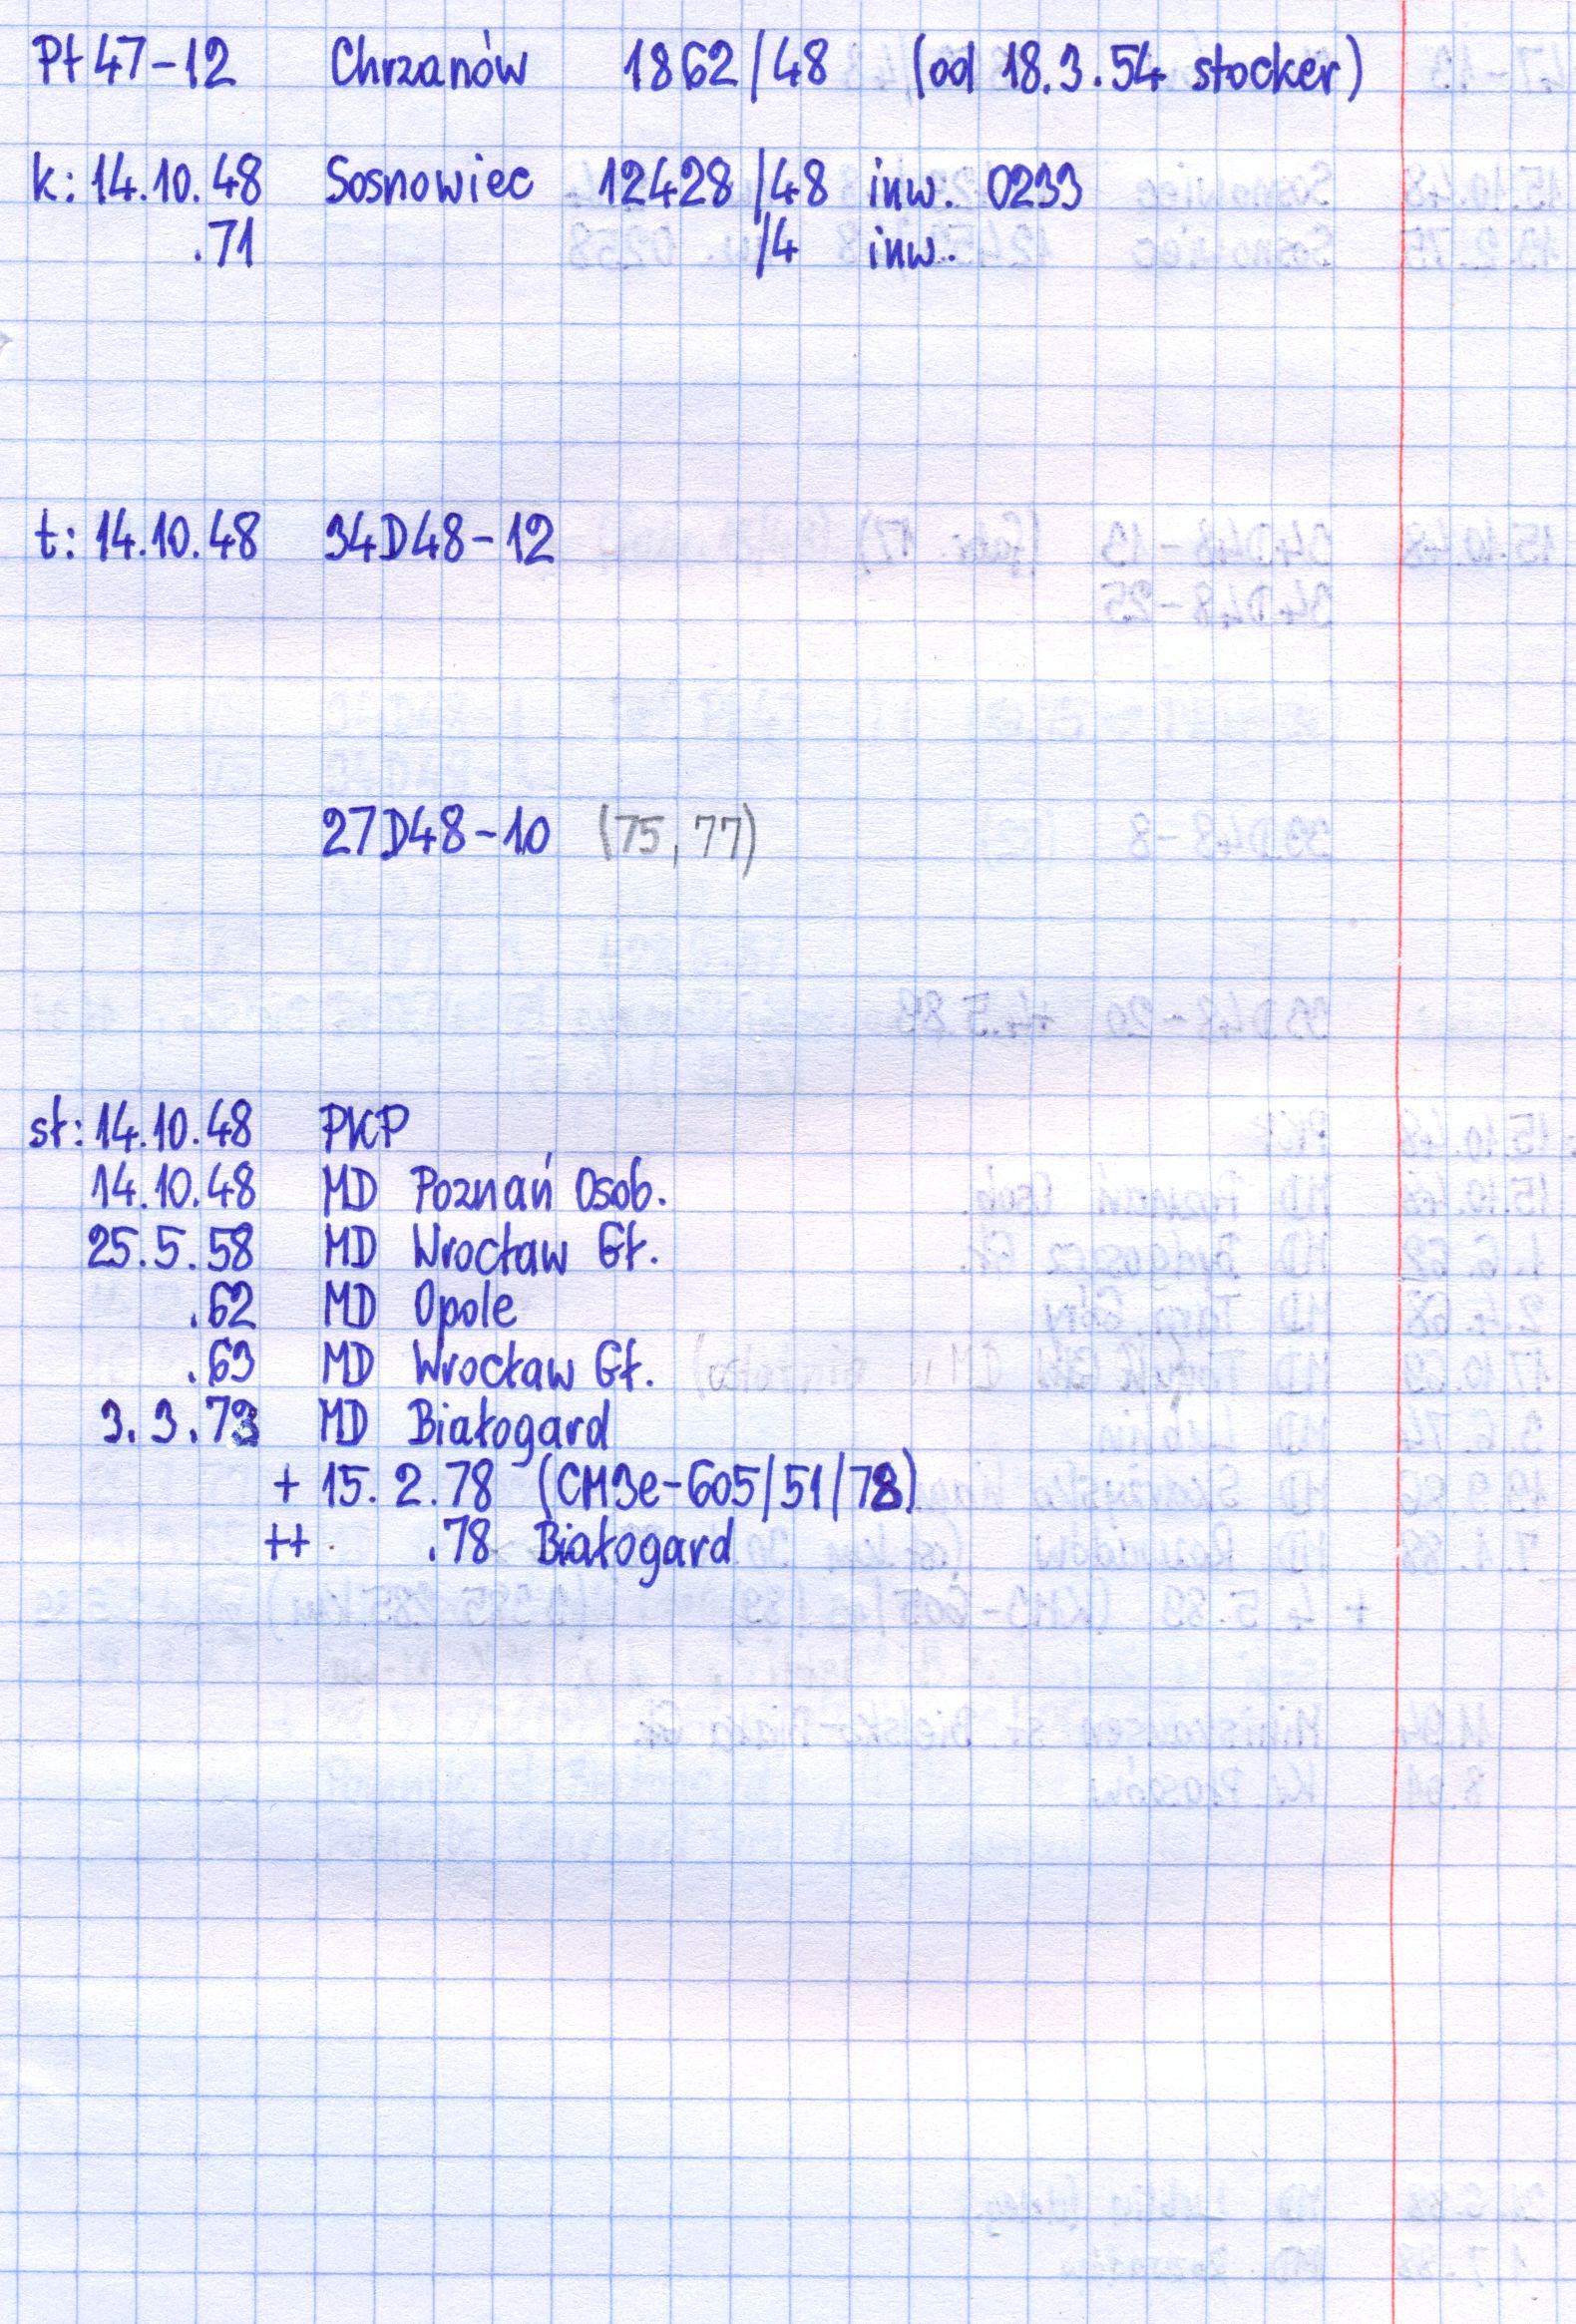 Pt47-12 Chrzanów 1862/48 (od 18.3.54 stocker)
k: 14.10.48 Sosnowiec 12428/48 inw. 0233
.71 /4 inw.
t: 14.10.48 34D48-12
27D48-10 (75, 77)
st: 14.10.48 PKP
14.10.48 MD Poznań Osob.
25.5.58 MD Wrocław Gł.
.62 MD Opole
.63 MD Wrocław Gł.
3.3.73 MD Białogard
+ 15.2.78 (CM3e-605/51/78)
++ .78 Białogard